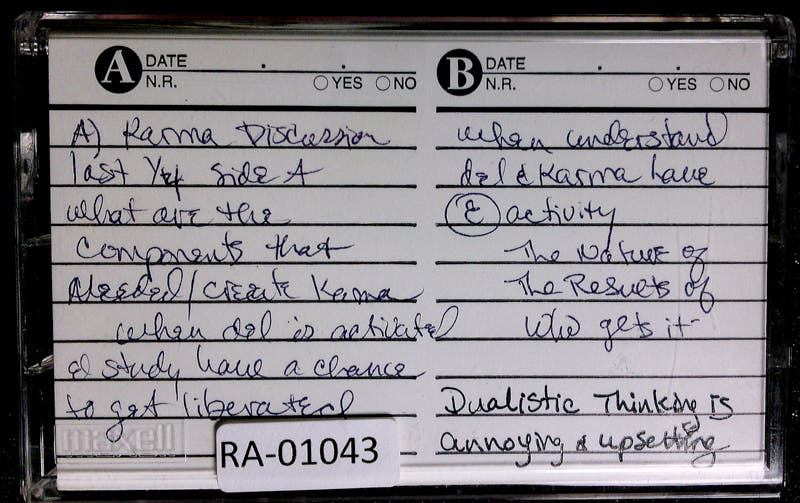 A DATE . .
N.R. YES NO
A) Karma Discussion
last Side A
what are the
Components that
Needed/create Karma
when del is activated
& study have a chance
to get liberated
maxell
RA-01043
B DATE . .
N.R. YES NO
when understand
del & Karma have
E activity
The Nature of
The Results of
Who gets it
Dualistic Thinking is
annoying & upsetting